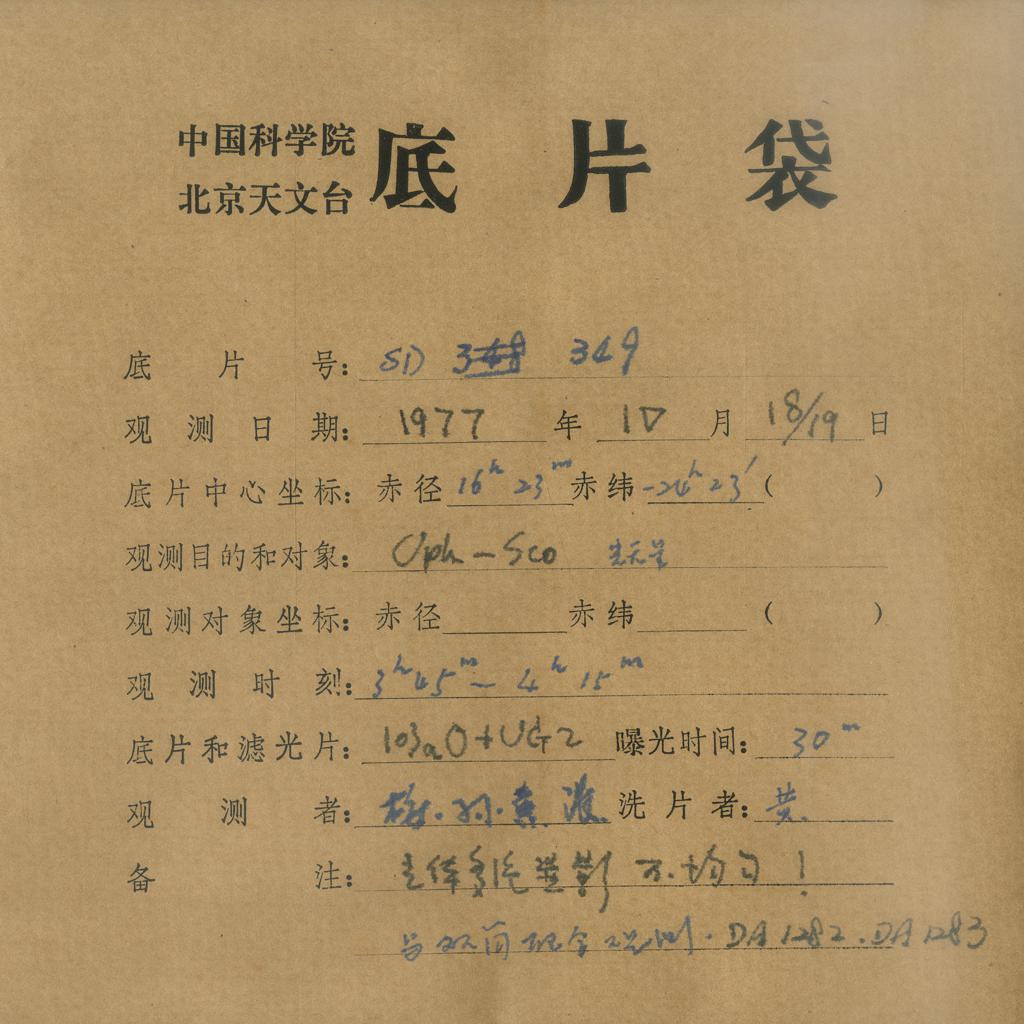 中国科学院
北京天文台
底片袋
底片号: SD 349
观测日期: 1977 年 IV 月 18/19 日
底片中心坐标: 赤径 16h 23m 赤纬 -24h 23′ ( )
观测目的和对象: Oph - Sco
观测对象坐标: 赤径 赤纬 ( )
观测时刻: 3h 45m - 4h 15m
底片和滤光片: 103aO + UG2 曝光时间: 30m
观测者: 洗片者: 黄
备注: 不均匀!
与双筒配合观测. DA 1282. DA 1283